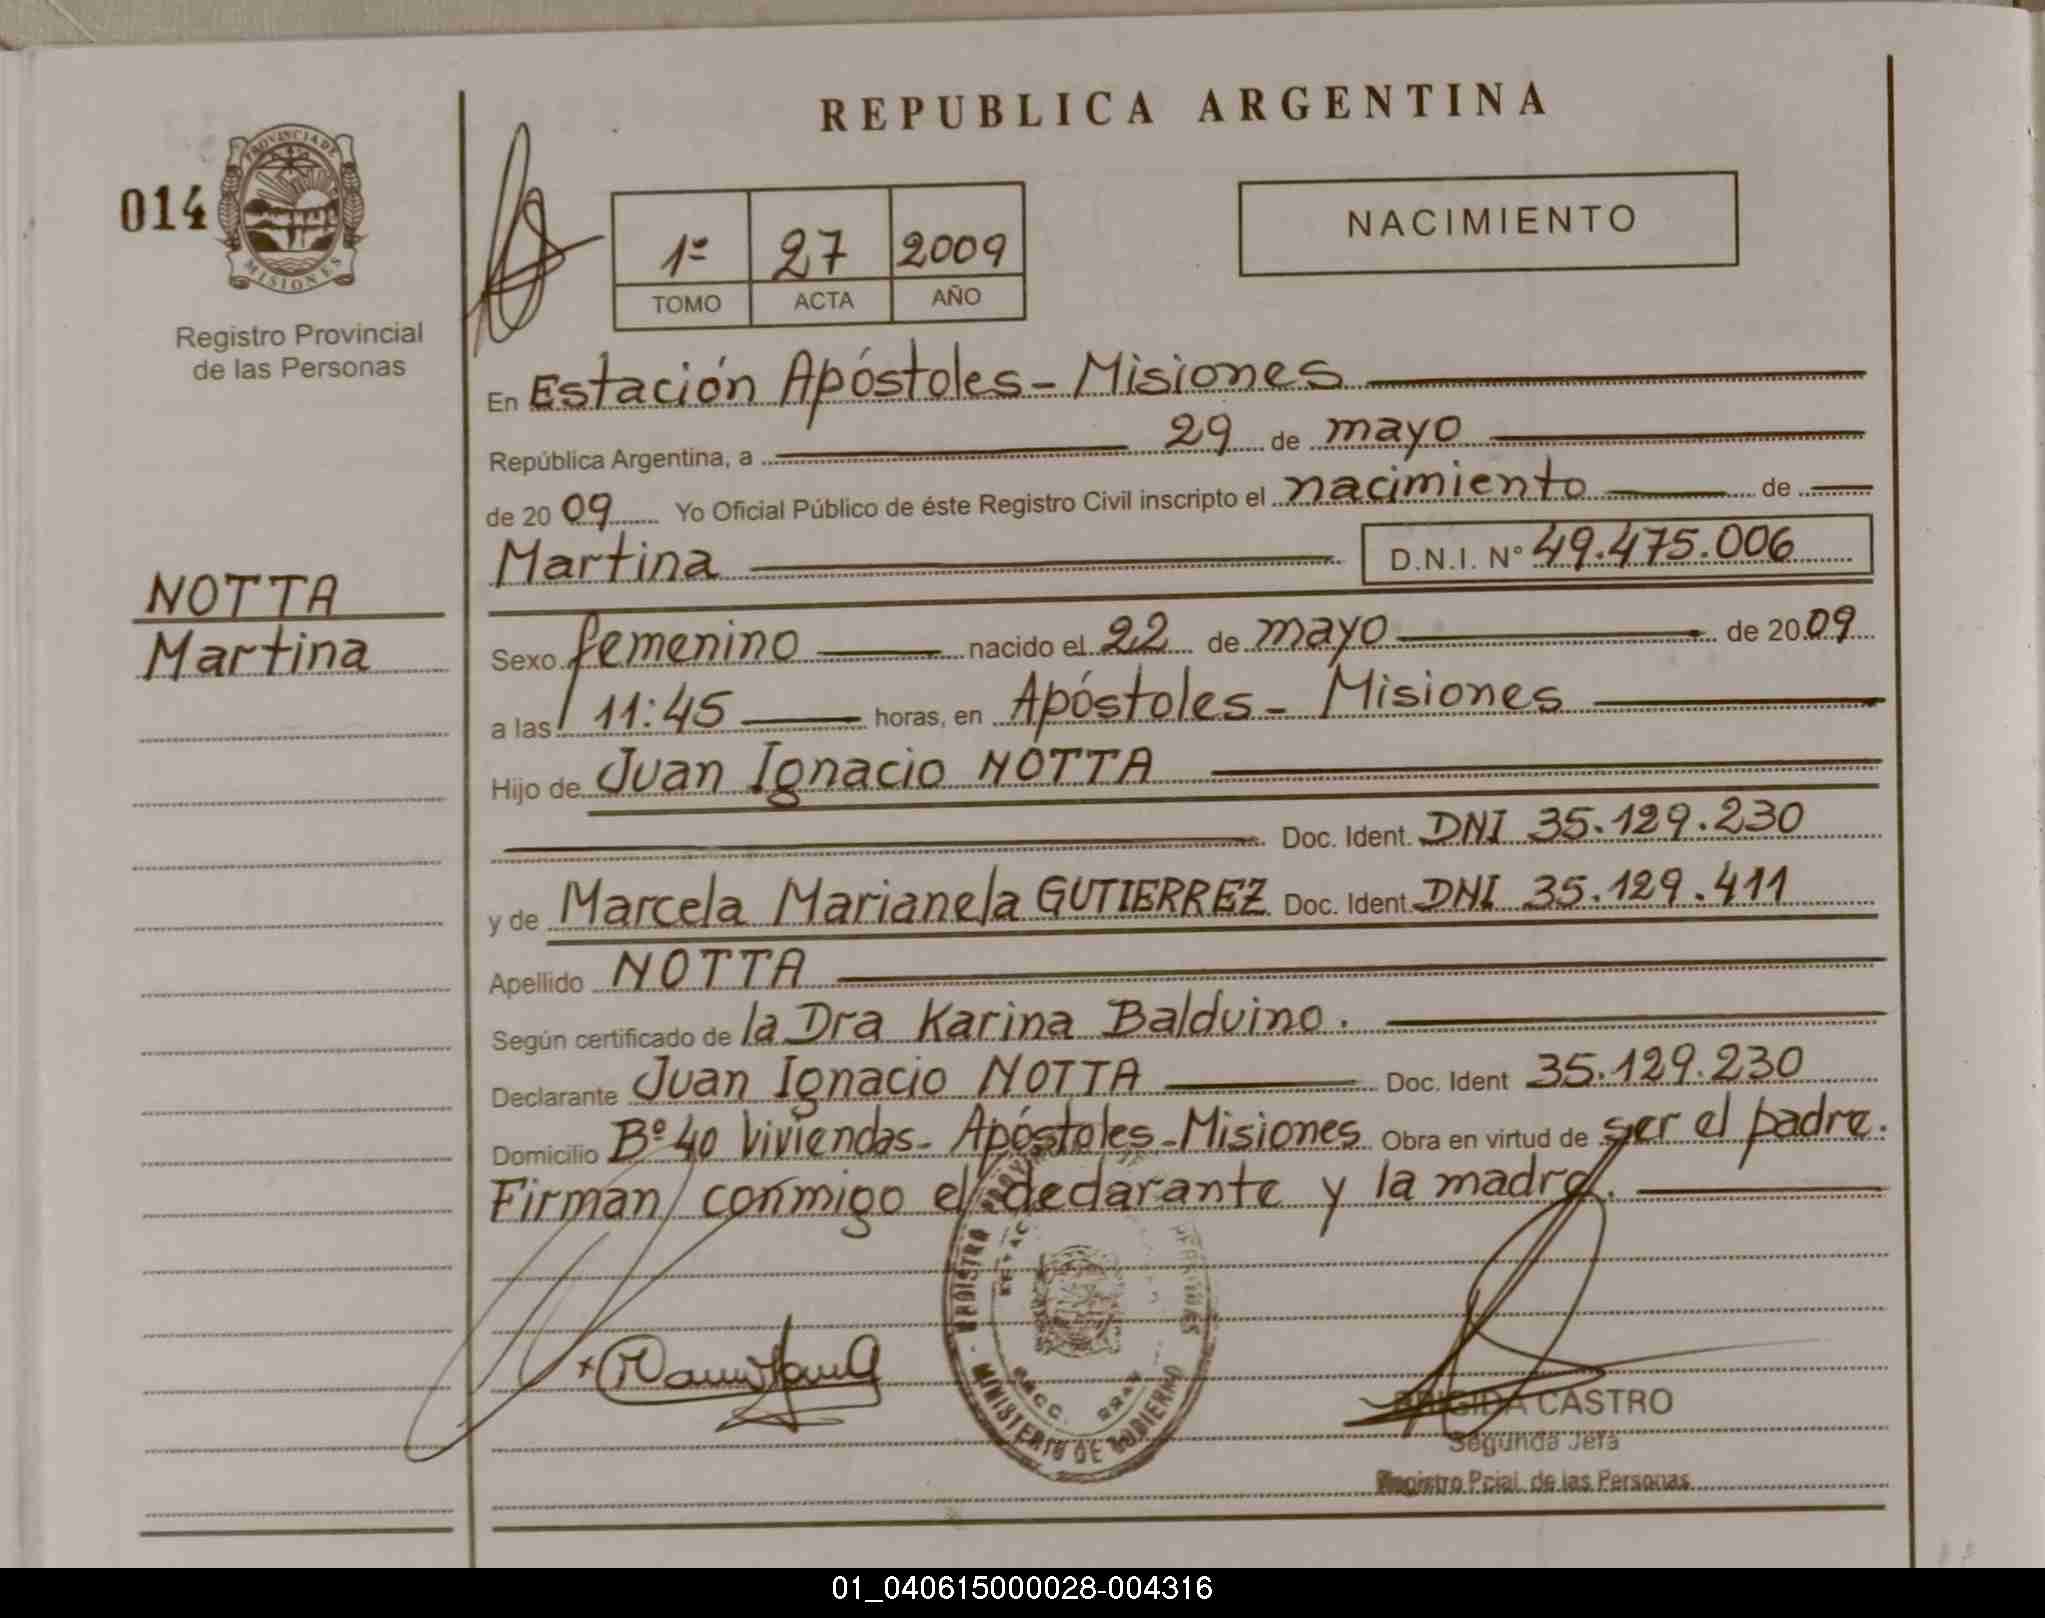 REPUBLICA ARGENTINA
014
PROVINCIA DE
MISIONES
Registro Provincial
de las Personas
1º 27 2009
TOMO ACTA AÑO
NACIMIENTO
En Estación Apóstoles - Misiones
República Argentina, a 29 de mayo
de 2009 Yo Oficial Público de éste Registro Civil inscripto el nacimiento de
Martina D.N.I. N° 49.475.006
NOTTA
Martina
Sexo femenino nacido el 22 de mayo de 2009
a las 11:45 horas, en Apóstoles - Misiones
Hijo de Juan Ignacio NOTTA
Doc. Ident. DNI 35.129.230
y de Marcela Marianela GUTIERREZ Doc. Ident. DNI 35.129.411
Apellido NOTTA
Según certificado de la Dra Karina Balduino.
Declarante Juan Ignacio NOTTA Doc. Ident 35.129.230
Domicilio Bº 40 Viviendas - Apóstoles - Misiones Obra en virtud de ser el padre.
Firman conmigo el declarante y la madre.
REGISTRO
MINISTERIO DE GOBIERNO
BRIGIDA CASTRO
Segunda Jefa
Registro Pcial. de las Personas
01_040615000028-004316